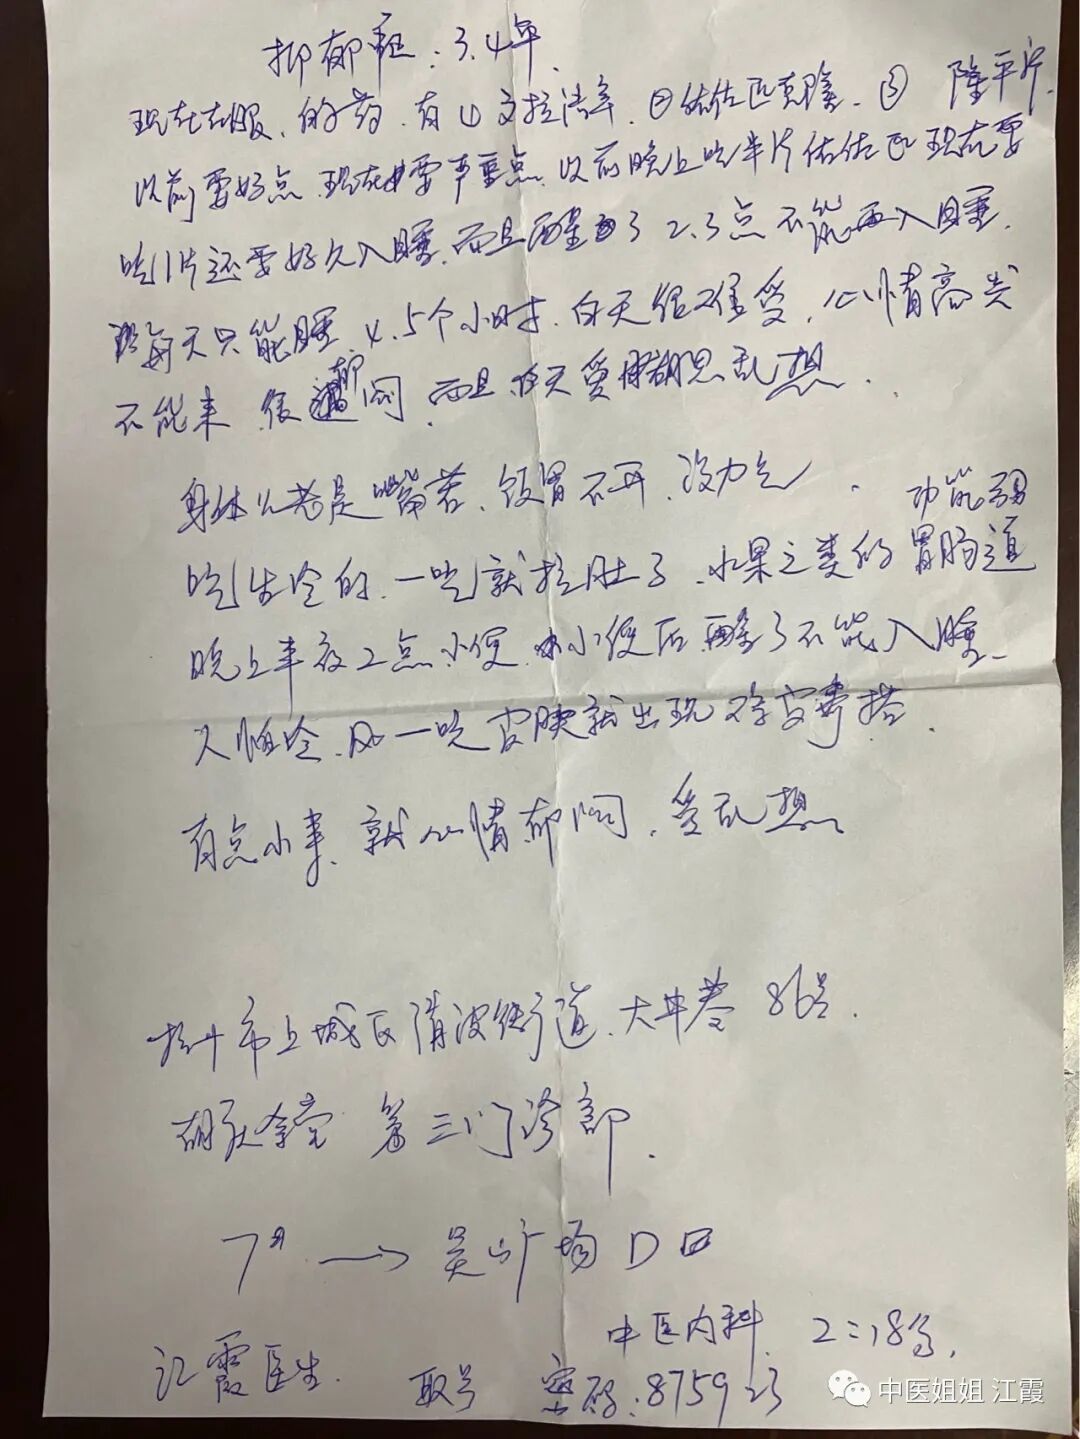 抑郁症:3.4年
现在在服的药.有①文拉法辛.②佑佐匹克隆.③ 隆平片.
以前要好点.现在要严重点.以前晚上吃半片佑佐匹现在要
吃1片还要好久入睡.而且醒了2.3点不能再入睡.
每天只能睡4.5个小时.白天很难受,心情高兴
不能来 很郁闷.而且白天爱胡思乱想.
身体老是嘴苦、饭胃不开、没力气.
功能弱
吃生冷的.一吃就拉肚子.水果之类的 胃肠道
晚上半夜2点小便.小便后醒了不能入睡.
人怕冷.风一吹皮肤就出现鸡皮疙瘩.
有点小事.就心情郁闷,爱乱想
杭州市上城区清波街道.大井巷86号.
胡庆余堂 第三门诊部.
7号 → 吴山广场D口
中医内科. 2:18号.
江霞医生. 取号 密码:875923
中医姐姐 江霞